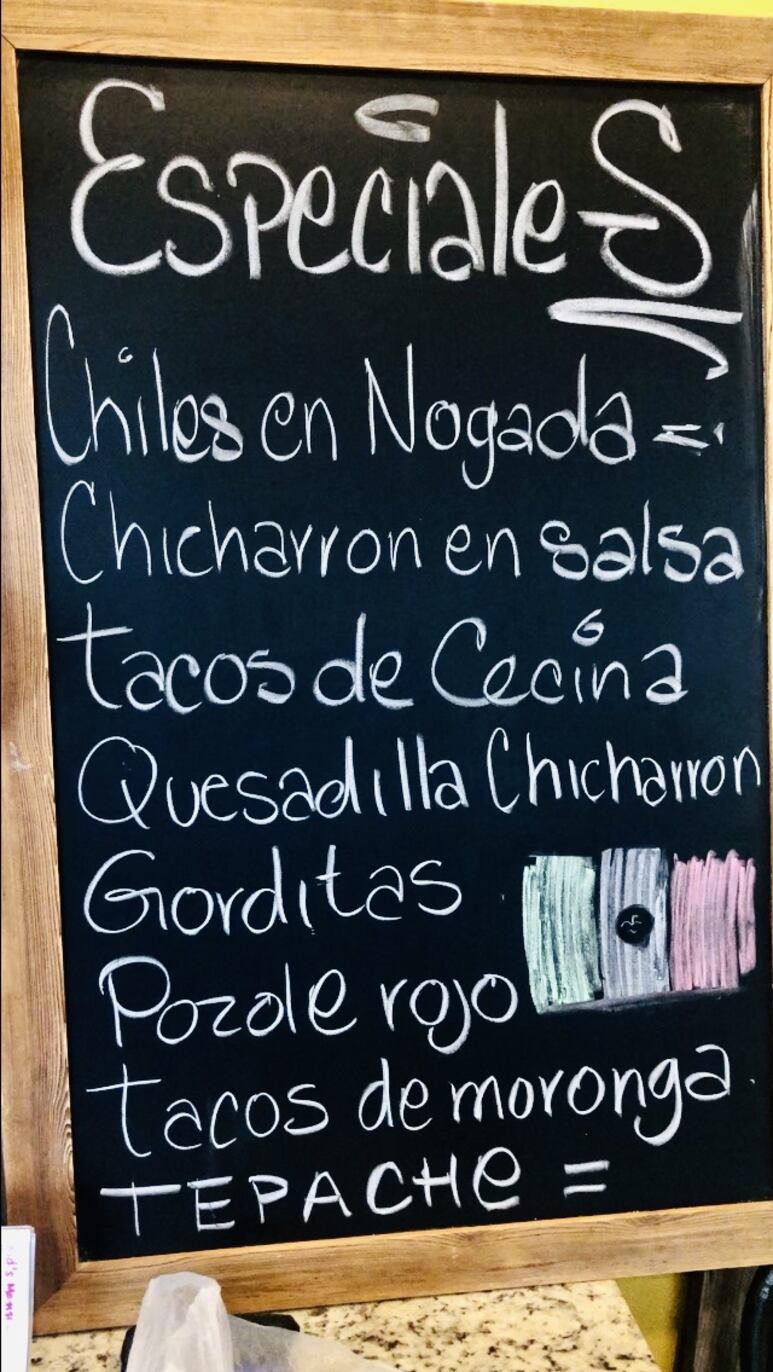 EspecialeS
Chiles en Nogada =
Chicharron en salsa
tacos de Cecina
Quesadilla Chicharron
Gorditas
Pozole rojo
tacos de moronga.
TEPACHe =
Kid's Menu